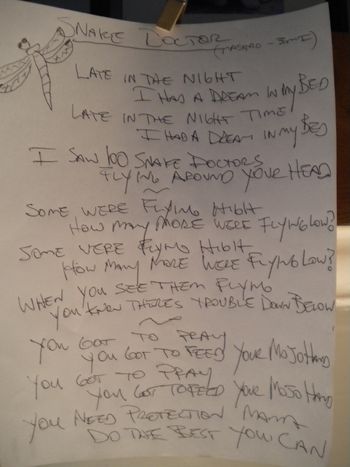 SNAKE DOCTOR
LATE IN THE NIGHT
I HAD A DREAM IN MY BED
LATE IN THE NIGHT TIME
I HAD A DREAM IN MY BED
I SAW 100 SNAKE DOCTORS
FLYING AROUND YOUR HEAD
SOME WERE FLYING HIGH
HOW MANY MORE WERE FLYING LOW?
SOME WERE FLYING HIGH
HOW MANY MORE WERE FLYING LOW?
WHEN YOU SEE THEM FLYING
YOU KNOW THERE'S TROUBLE DOWN BELOW
YOU GOT TO PRAY
YOU GOT TO FEED YOUR MOJO HAND
YOU GOT TO PRAY
YOU GOT TO FEED YOUR MOJO HAND
YOU NEED PROTECTION MAMA
DO THE BEST YOU CAN